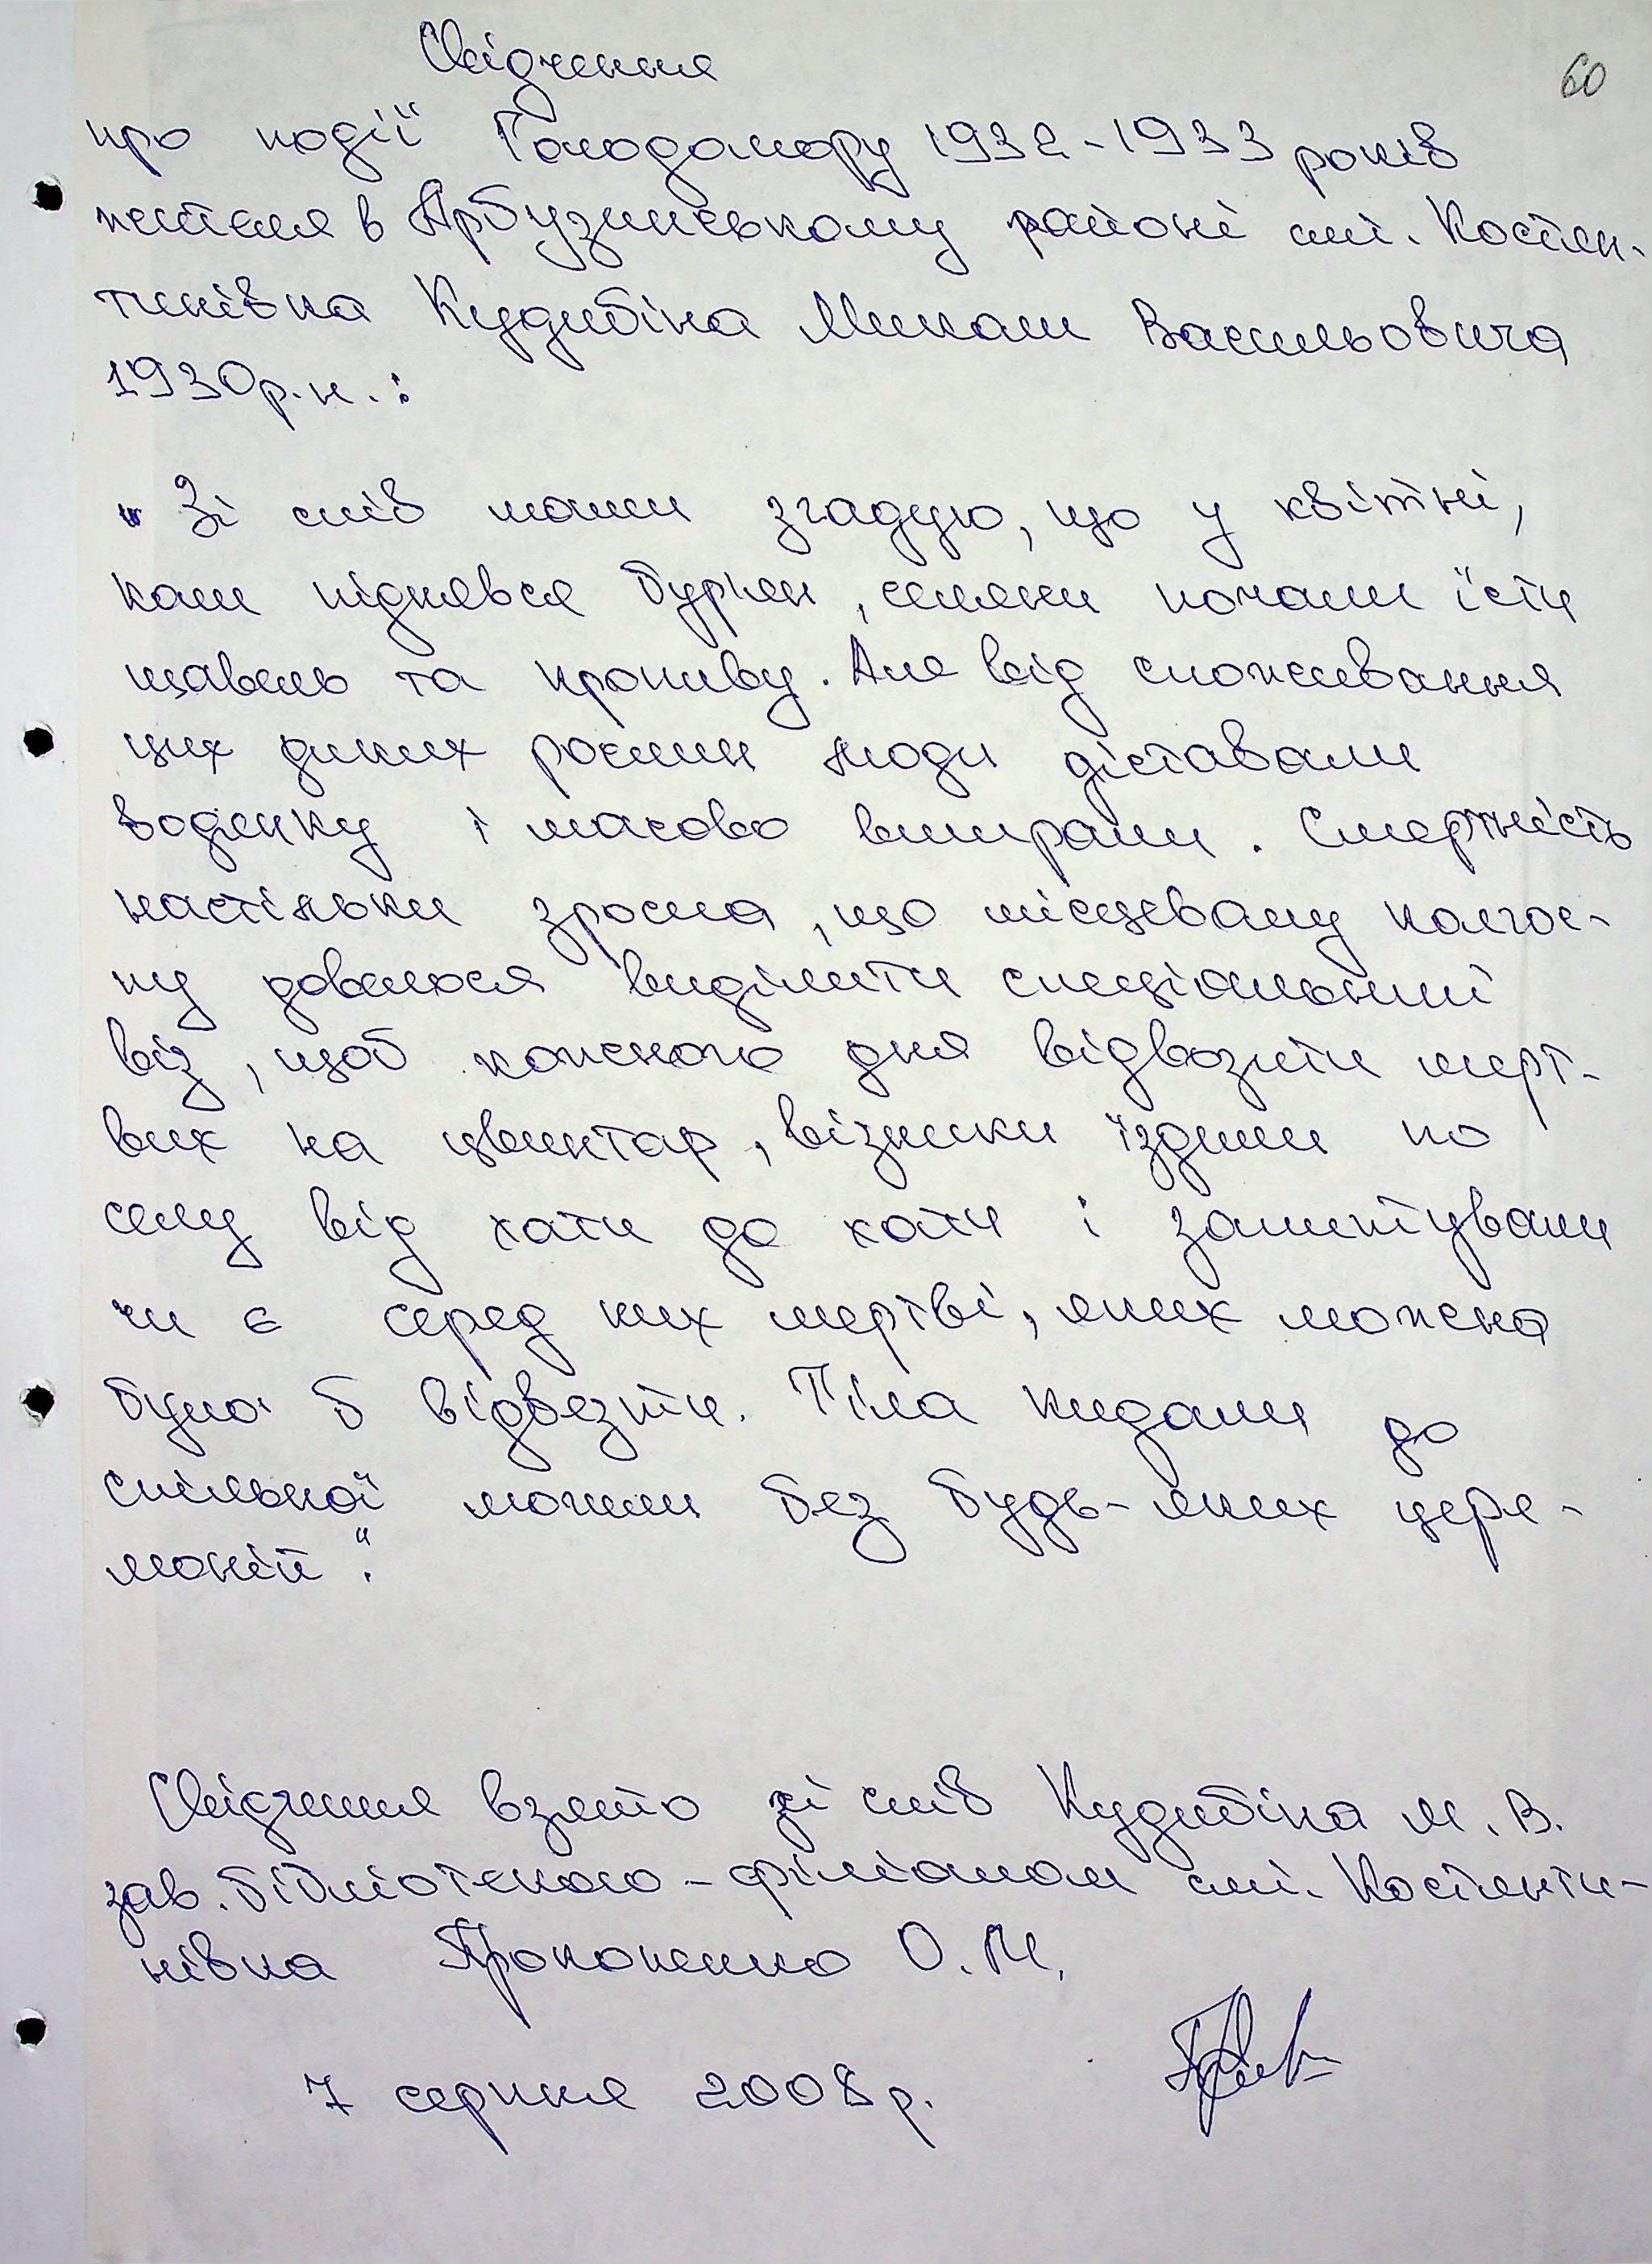 Свідчення
60
про події Голодомору 1932-1933 років
жителя в Арбузинському районі смт. Костян-
тинівка Кудибіна Миколи Васильовича
1930р.н.:
"Зі слів мами згадую, що у квітні,
коли піднявся бур'ян, селяни почали їсти
щавель та кропиву. Але від споживання
цих диких рослин люди діставали
водянку і масово вмирали. Смертність
настільки зросла, що місцевому колгос-
пу довелося виділити спеціальний
віз, щоб кожного дня відвозити мерт-
вих на цвинтар, візники їздили по
селу від хати до хати і запитували
чи є серед них мертві, яких можна
було б відвезти. Тіла кидали до
спільної могили без будь-яких цере-
моній".
Свідчення взято зі слів Кудибіна М. В.
зав. бібліотекою-філіалом смт. Костянти-
нівка Прокопенко О. М.
7 серпня 2008р.